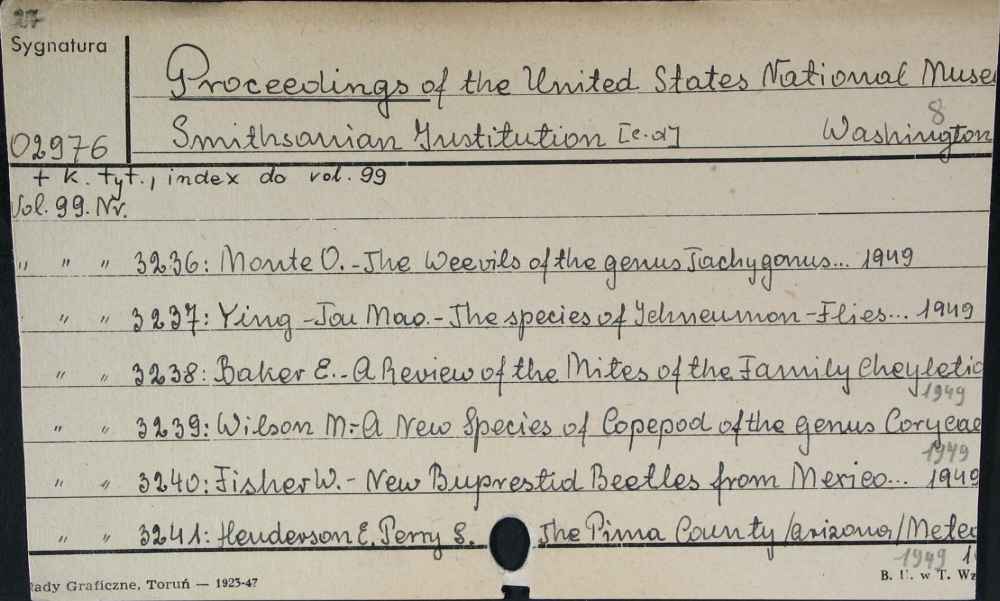 27
Sygnatura
Proceedings of the United States National Muse
8
02976 Smithsanian Institution [e.d] Washington
+ k. tyt., index do vol. 99
Vol. 99. Nr.
" " " 3236: Monte O. - The Weevils of the genus Tachygonus... 1949
" " 3237: Ying - Tou Mao. - The species of Ichneumon - Flies... 1949
" " 3238: Baker E. - A Review of the Mites of the Family Cheyletid
1949
" " 3239: Wilson M. - A New Species of Copepod of the genus Corycae
1949
" " 3240: Fisher W. - New Buprestid Beetles from Mexico... 1949
" " 3241: Henderson E. Perry S. The Pima County /Arizona/ Meteo
1949 1
łady Graficzne, Toruń — 1923-47 B. U. w T. Wz